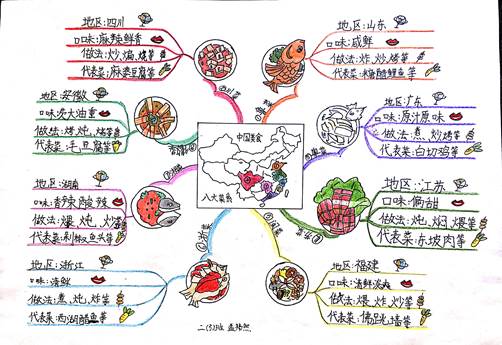 地区:四川
口味:麻辣鲜香
做法:炒,煸,烧等
代表菜:麻婆豆腐等
地区:山东
口味:咸鲜
做法:炸,炒,烤等
代表菜:糖醋鲤鱼等
地区:安徽
口味:炎大油重
做法:烤,炖,烧等
代表菜:毛豆腐等
地区:广东
口味:原汁原味
做法:煮,炒,烤等
代表菜:白切鸡等
中国美食
八大菜系
地区:湖南
口味:香辣,酸辣
做法:爆,炖,火烤
代表菜:剁椒鱼头等
地区:江苏
口味:偏甜
做法:炖,焖,煨等
代表菜:东坡肉等
地区:浙江
口味:清鲜
做法:煮,炖,炸等
代表菜:西湖醋鱼等
地区:福建
口味:清鲜淡爽
做法:煨,炸,炒等
代表菜:佛跳墙等